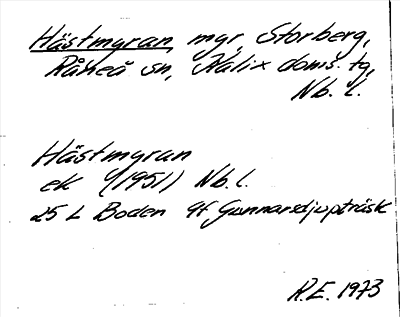 Hästmyran, myr, Storberg,
Råneå sn, Kalix doms. tg,
Nb. l.
Hästmyran
ek (1951) Nb. l.
25 L Boden 9f Gunnarsdjupträsk
R.E. 1973